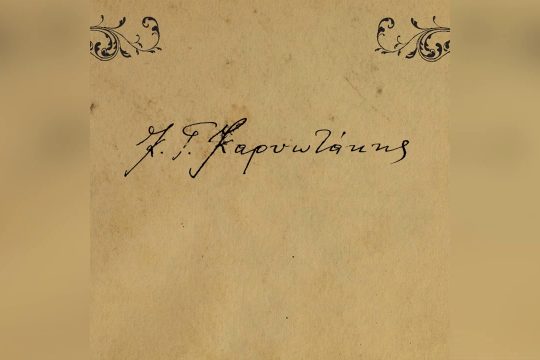 Κ. Γ. Καρυωτάκης